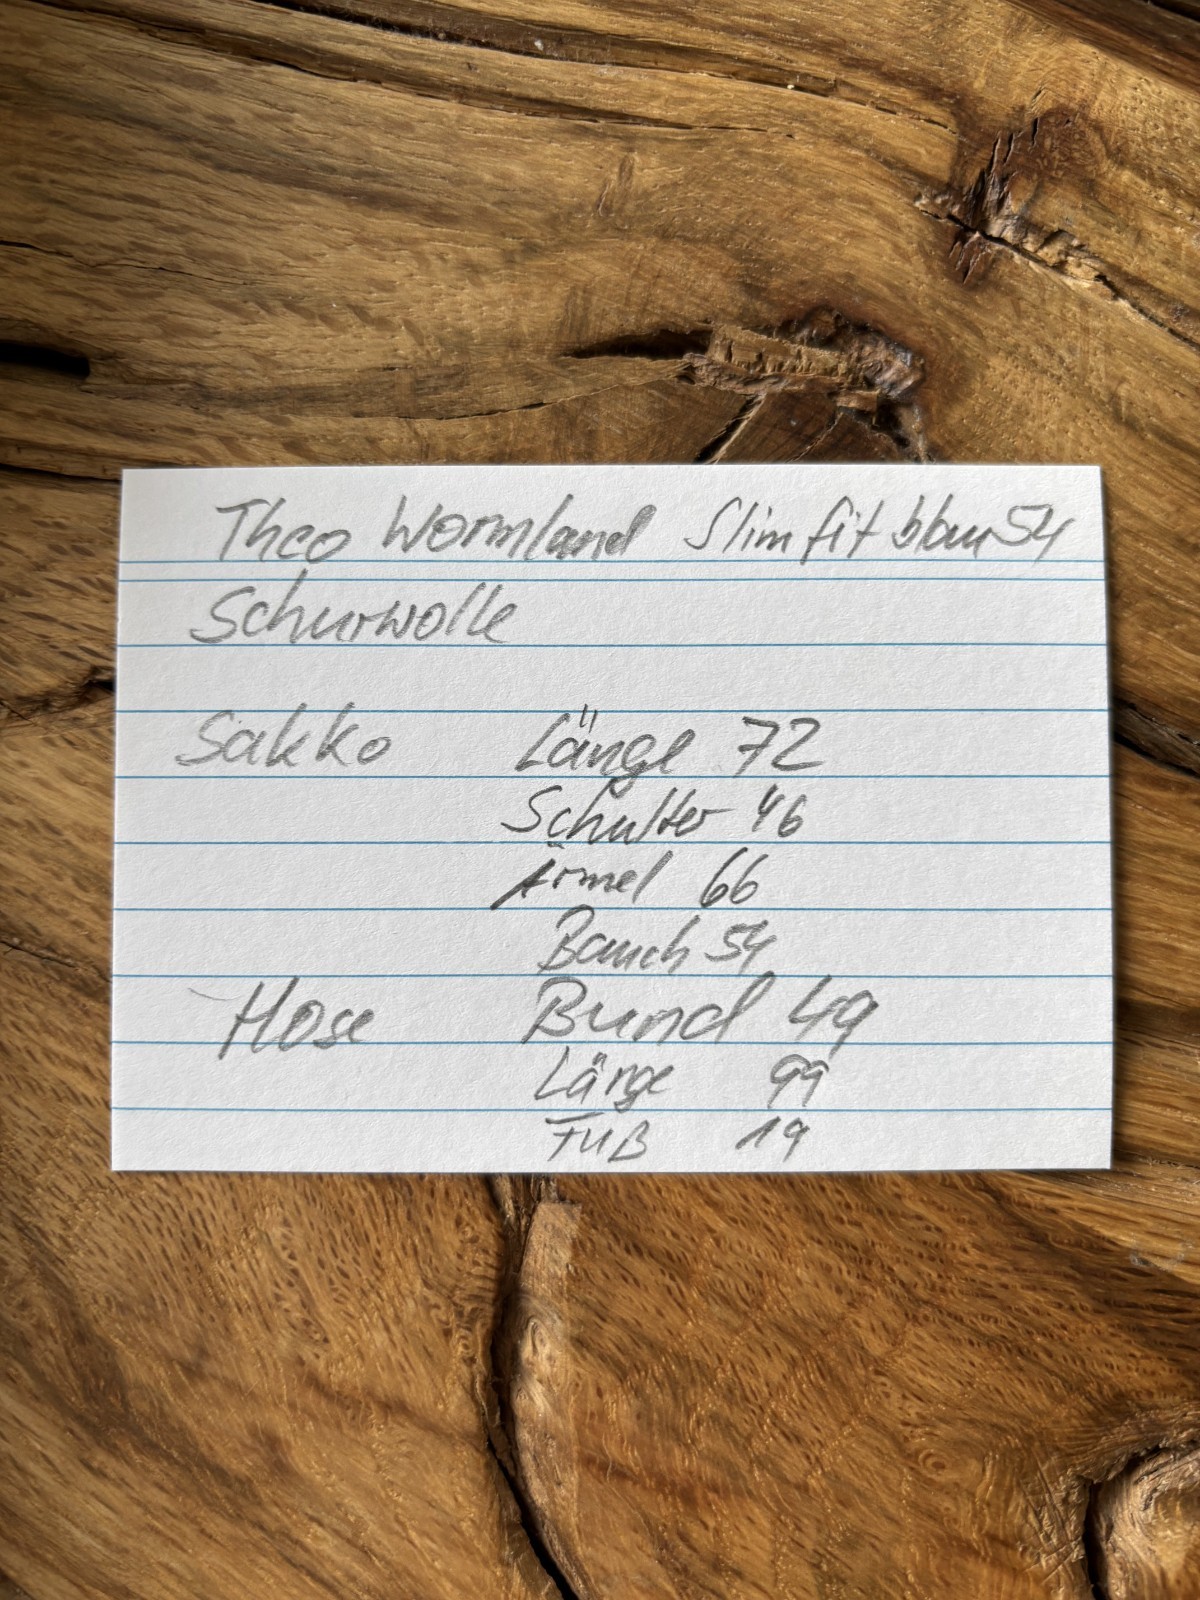 Theo Wormland Slim fit blau 54
Schurwolle
Sakko Länge 72
Schulter 46
Ärmel 66
Bauch 54
Hose Bund 49
Länge 99
Fuß 19